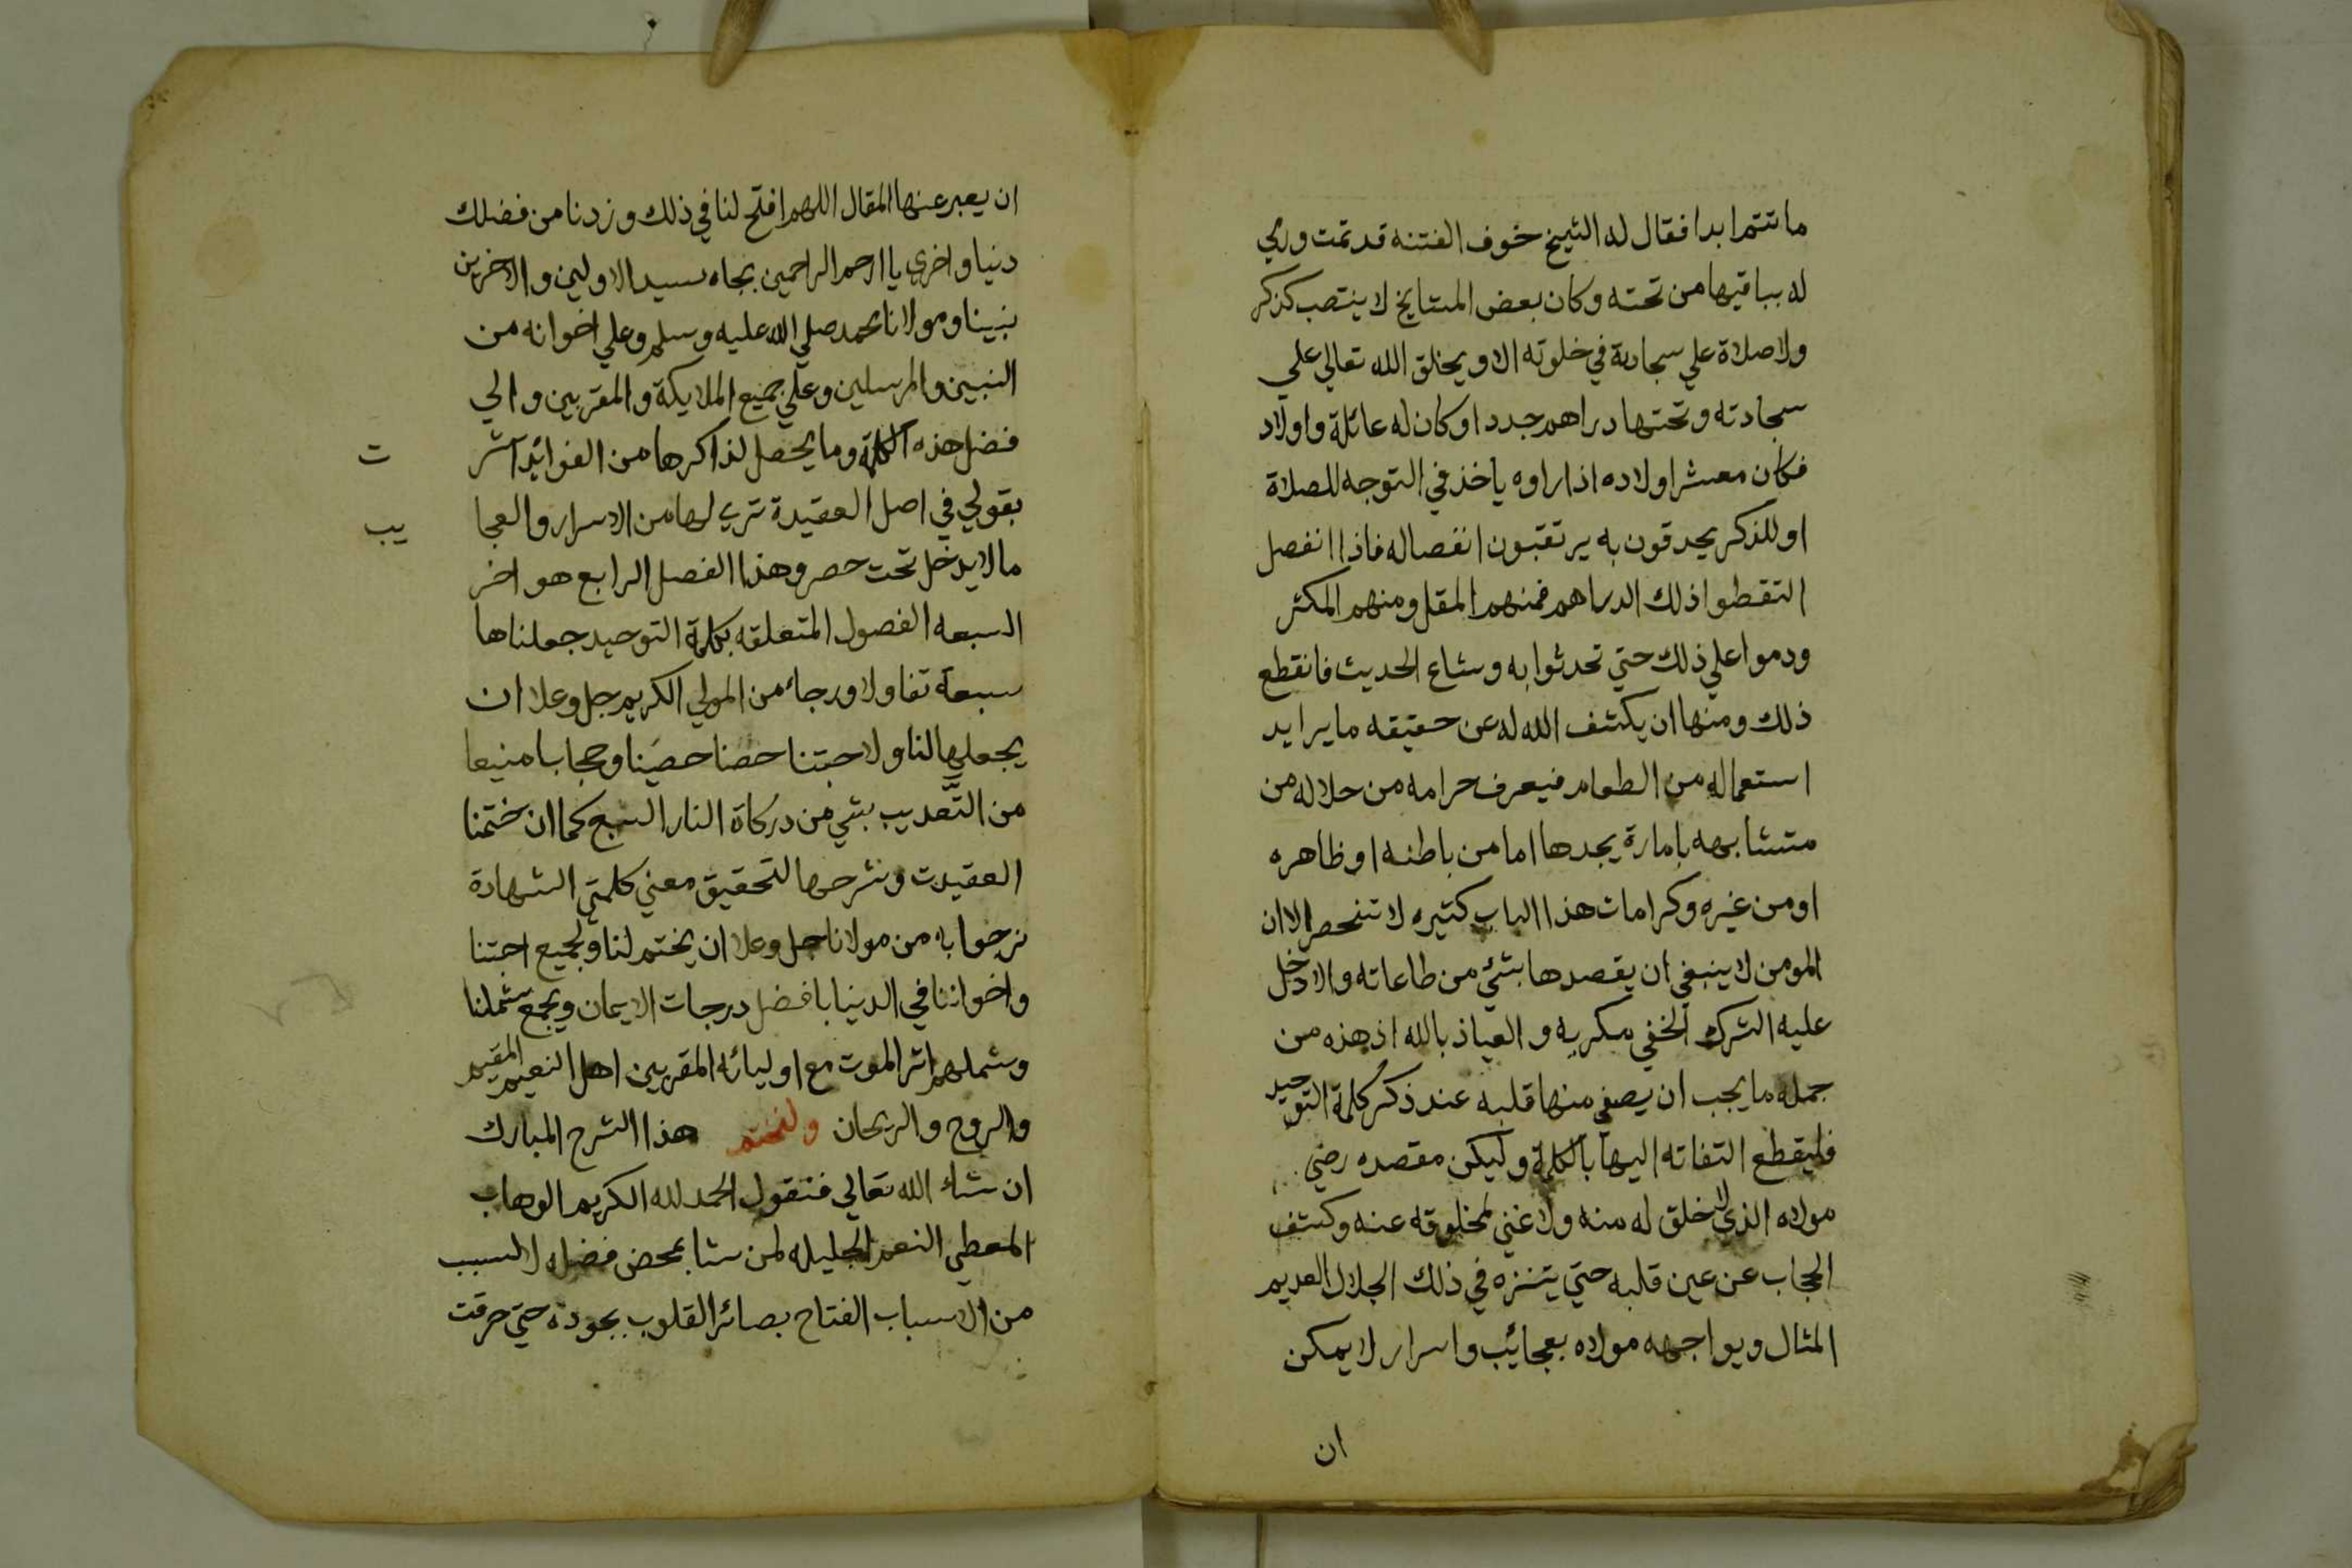 ما تتم ابدا فقال له الشيخ خوف الفتنه قد تمت ورمي
له بباقيها من تحته وكان بعض المشايخ لا ينتصب كذكر
ولا صلاة علي سجادة في خلوته الا ويخلق الله تعالي علي
سجادته وتحتها دراهم جددا وكان له عائلة واولاد
فكان معشر اولاده اذا راوه ياخذ في التوجه للصلاة
او للذكر يحدقون به يرتقبون انفصاله فاذا انفصل
التقطوا ذلك الدراهم فمنهم المقل ومنهم المكثر
ودموا علي ذلك حتي تحدثوا به وشاع الحديث فانقطع
ذلك ومنها ان يكشف الله له عن حقيقه ما يرايد
استعماله من الطعام فيعرف حرامه من حلاله من
متشابهه بامارة يجدها اما من باطنه او ظاهره
او من غيره وكرامات هذا الباب كثيره لا تنحصر الا ان
المومن لا ينبغي ان يقصدها بشئ من طاعاته والا دخل
عليه الشرك الخفي مكربه والعياذ بالله اذ هذه من
جمله ما يجب ان يصفي منها قلبه عند ذكر كلمة التوحيد
فليقطع التفاته اليها بالكلمة وليكن مقصده رضي
مولاه الذي لا خلق له منه ولا غني لمخلوقه عنه وكشف
الحجاب عن عين قلبه حتي يتنزه في ذلك الجلال العديم
المثال ويواجهه مولاه بعجائب واسرار لا يمكن
ان
ان يعبر عنها المقال اللهم افتح لنا في ذلك وزدنا من فضلك
دنيا واخري يا ارحم الراحمين بجاه سيد الاولين والاخرين
نبينا ومولانا محمد صلي الله عليه وسلم وعلي اخوانه من
النبيين والمرسلين وعلي جميع الملايكة والمقربين والي
فضل هذه الكلمة وما يحصل لذاكرها من الفوائد اشر
ت
بقولي في اصل العقيدة تري لها من الاسرار والعجا
يب
ما لا يدخل تحت حصر وهذا الفصل الرابع هو اخر
السبعه الفصول المتعلقه بكلمة التوحيد جعلناها
سبعة تفاولا ورجاء من المولي الكريم جل وعلا ان
يجعلها لنا ولاحبتنا حصنا حصينا وحجابا منيعا
من التعديب بشي من دركاة النار السبع كما ان ختمنا
العقيدت وشرحها لتحقيق معني كلمتي الشهادة
نرجوا به من مولانا جل وعلا ان يختم لنا ولجميع احبتنا
واخواننا في الدنيا بافضل درجات الايمان ويجمع شملنا
وشملهم اثر الموت مع اوليائه المقربين اهل النعيم المقيم
والروح والريحان ولنختم هذا الشرح المبارك
ان شاء الله تعالي فنقول الحمد لله الكريم الوهاب
المعطي النعم الجليله لمن شا بمحض فضله لا لسبب
من الاسباب الفتاح بصائر القلوب بجوده حتي حرقت